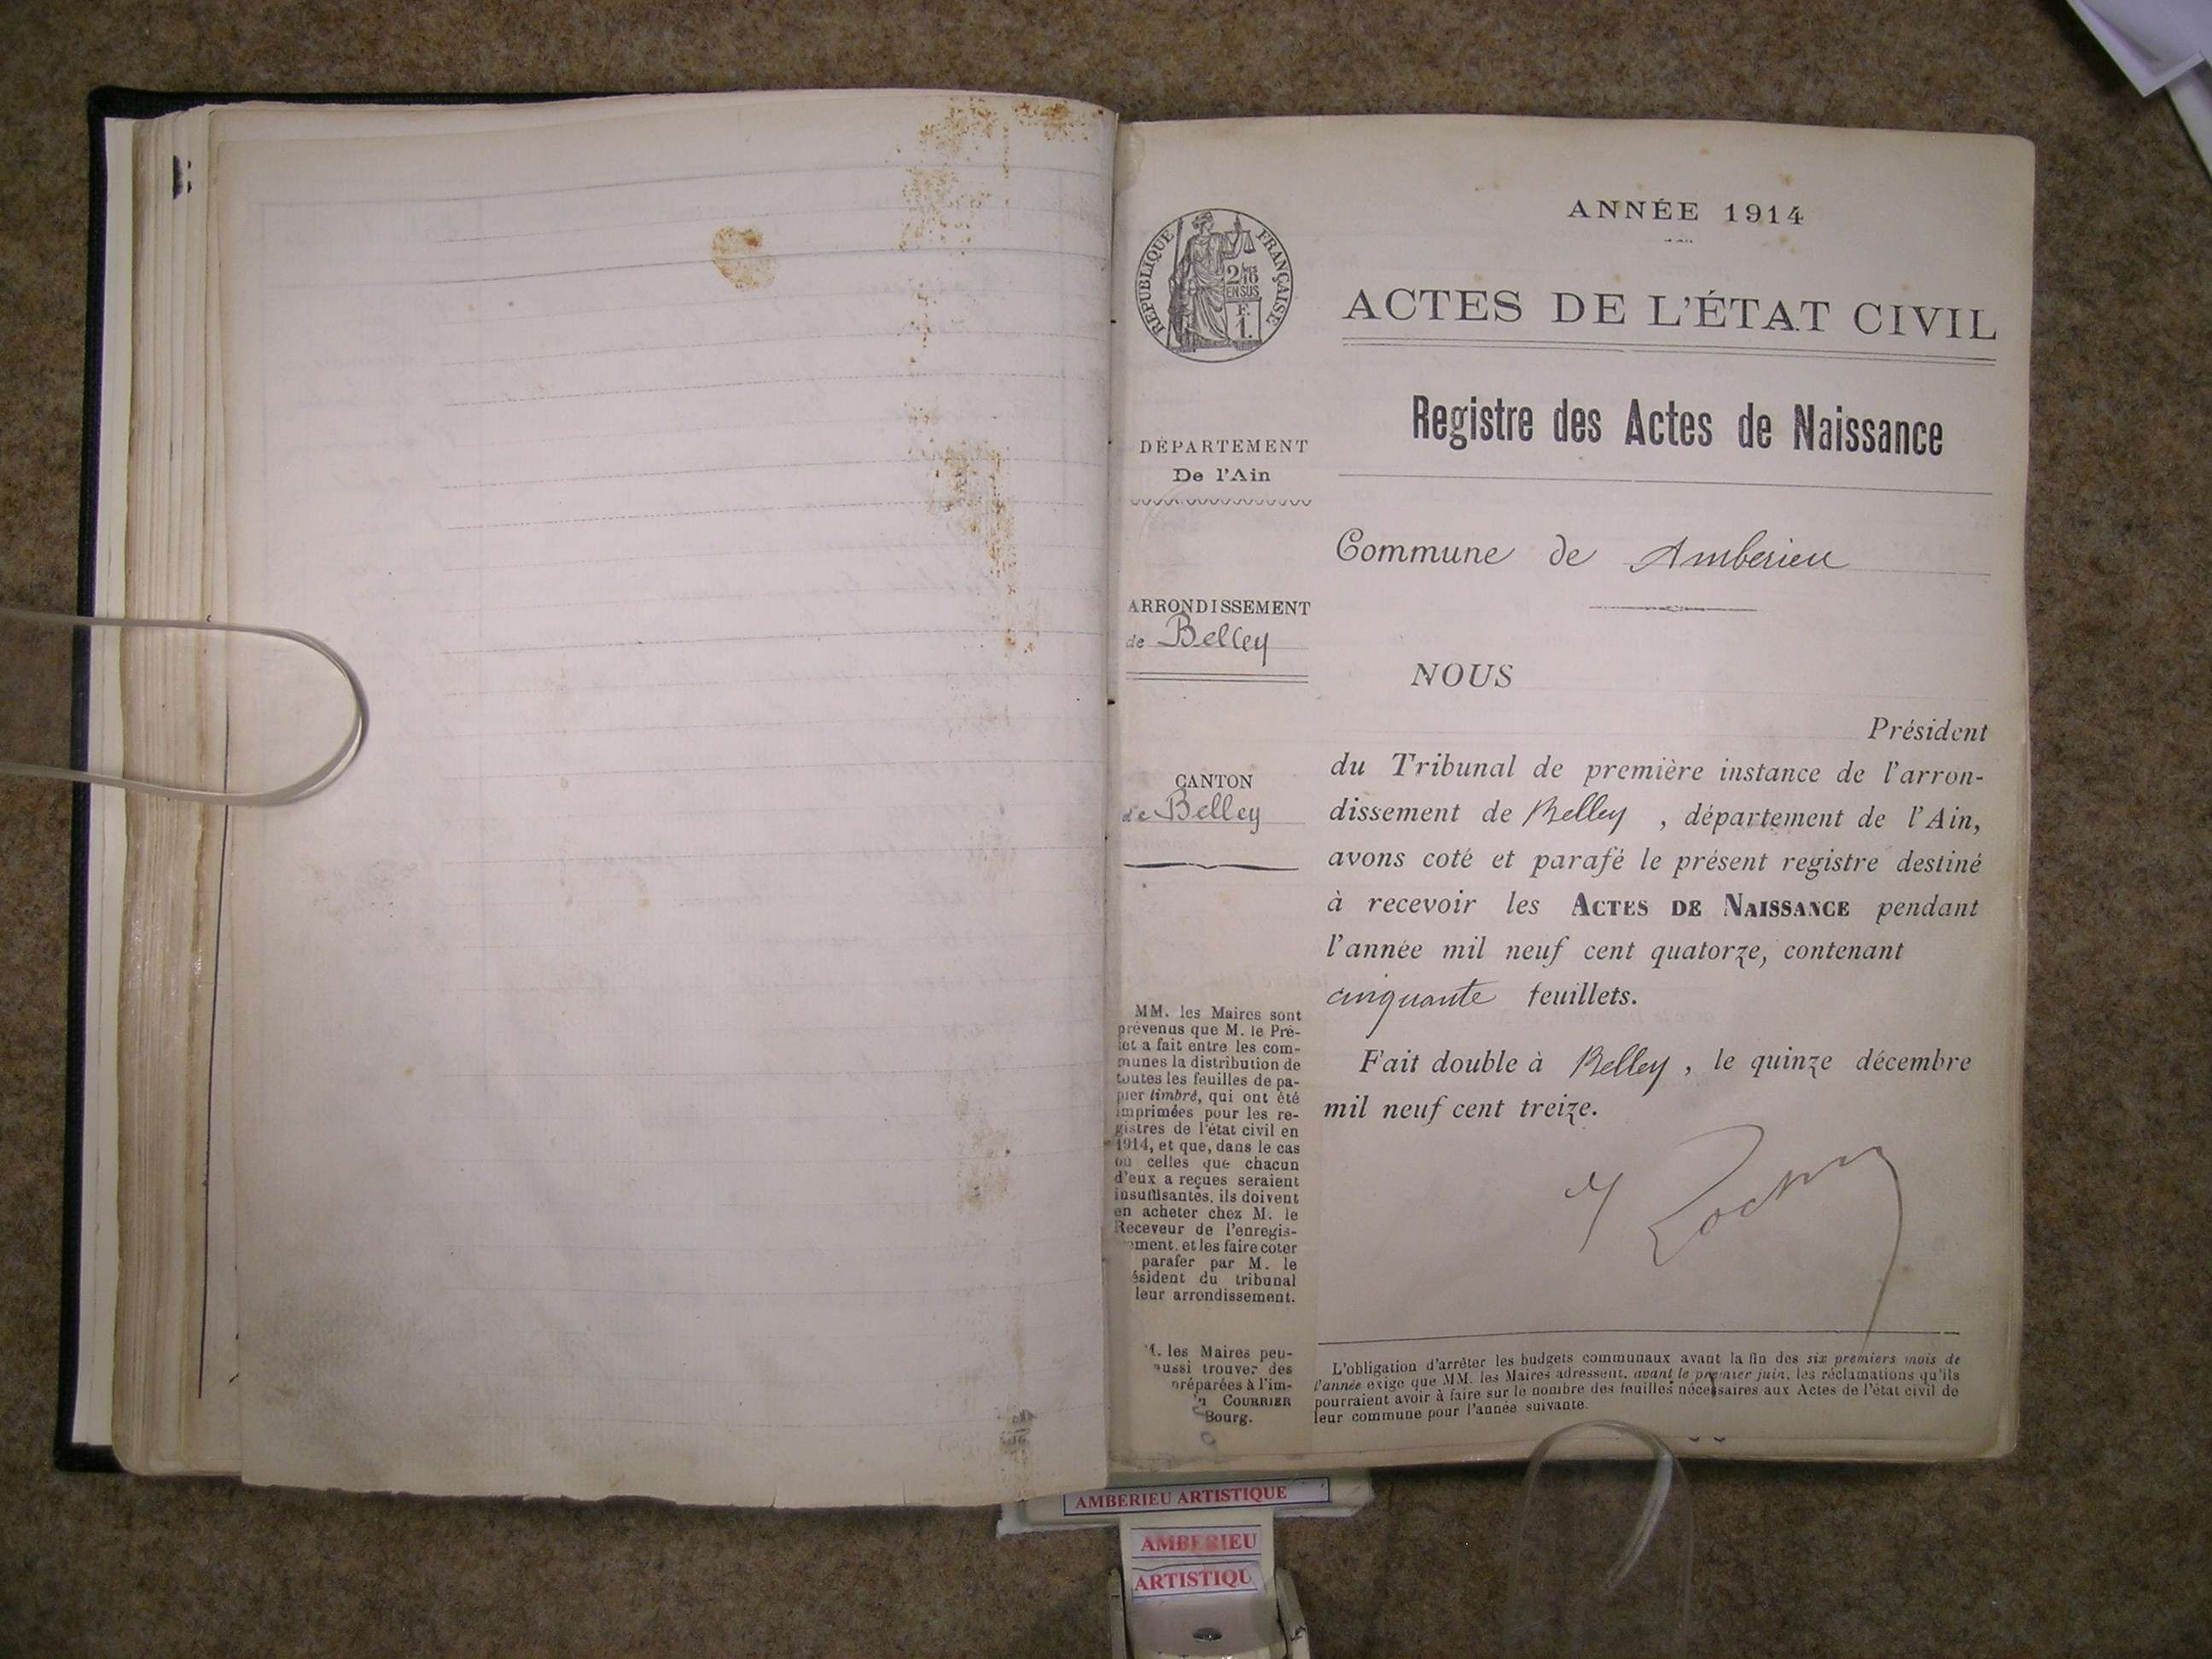 ANNÉE 1914
RÉPUBLIQUE FRANÇAISE
2/10
EN SUS
F.
1.
ACTES DE L'ÉTAT CIVIL
Registre des Actes de Naissance
DÉPARTEMENT
De l'Ain
Commune de Amberieu
ARRONDISSEMENT
de Belley
CANTON
de Belley
NOUS
Président
du Tribunal de première instance de l'arron-
dissement de Belley, département de l'Ain,
avons coté et parafé le présent registre destiné
à recevoir les ACTES DE NAISSANCE pendant
l'année mil neuf cent quatorze, contenant
cinquante feuillets.
Fait double à Belley, le quinze décembre
mil neuf cent treize.
MM. les Maires sont
prévenus que M. le Pré-
fet a fait entre les com-
munes la distribution de
toutes les feuilles de pa-
pier timbré, qui ont été
imprimées pour les re-
gistres de l'état civil en
1914, et que, dans le cas
où celles que chacun
d'eux a reçues seraient
insuffisantes, ils doivent
en acheter chez M. le
Receveur de l'enregis-
ement, et les faire coter
parafer par M. le
ésident du tribunal
leur arrondissement.
M. les Maires peu-
aussi trouver des
préparées à l'im-
COURRIER
Bourg.
L'obligation d'arrêter les budgets communaux avant la fin des six premiers mois de
l'année exige que MM. les Maires adressent, avant le premier juin, les réclamations qu'ils
pourraient avoir à faire sur le nombre des feuilles nécessaires aux Actes de l'état civil de
leur commune pour l'année suivante.
AMBERIEU ARTISTIQUE
AMBERIEU
ARTISTIQU